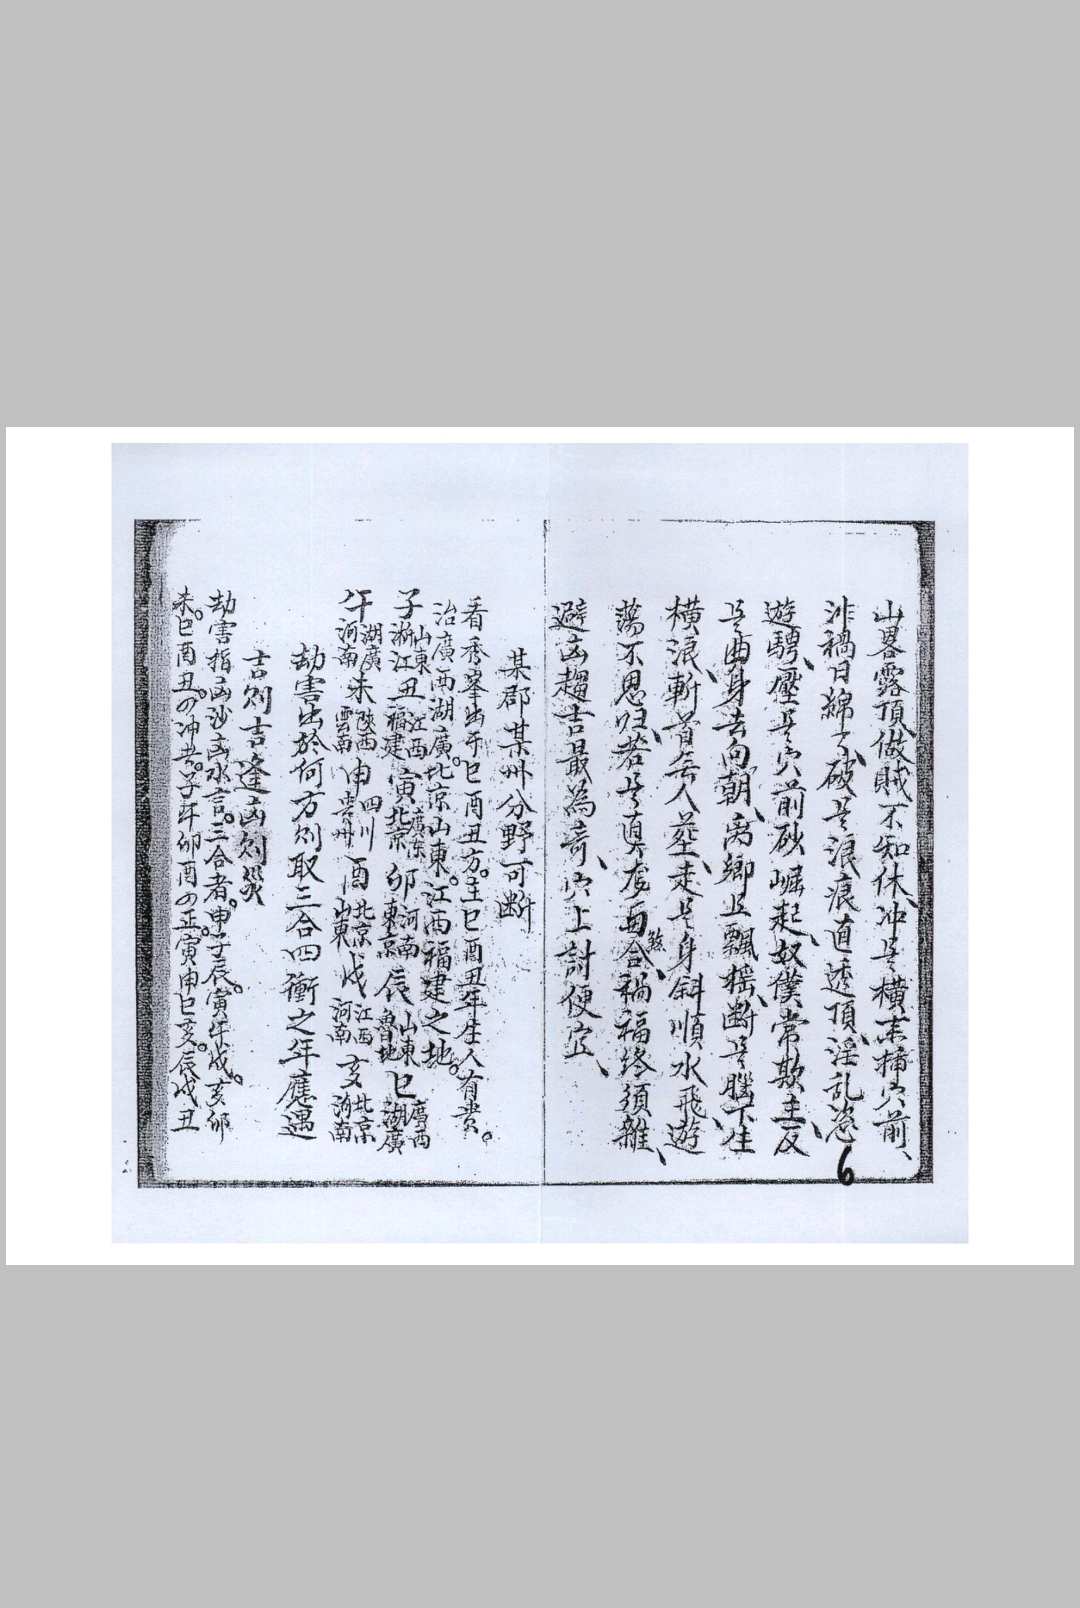 山畧露頂、做賊不知休、冲是橫來揷穴前、
非禍日綿々、破是浪痕直透頂、淫乱恣
遊騁、壓是穴前砂崛起、奴僕常欺主、反
是曲身去向朝、离鄉且飄搖、断是腦下生
橫浪、斬首無人葬、走是身斜順水飛、遊
蕩不思歸、若是真龍兼合、禍福終須雜、
避凶趨吉最為奇、穴上討便宜、
某郡某州分野可断
看秀峯出于巳酉丑方。主巳酉丑年生人有貴。
治廣西湖廣。北京山東。江西福建之地。
子山東浙江丑江西福建寅廣東北京卯河南東京辰山東魯地巳廣西湖廣
午湖廣河南未陝西雲南申四川貴州酉北京山東戌江西河南亥北京河南
劫害出於何方則取三合四衝之年應遇
吉則吉逢凶則災
劫害指凶沙凶水言。三合者。申子辰。寅午戌。亥卯
未。巳酉丑。四冲者。子午卯酉四正。寅申巳亥。辰戌丑
6